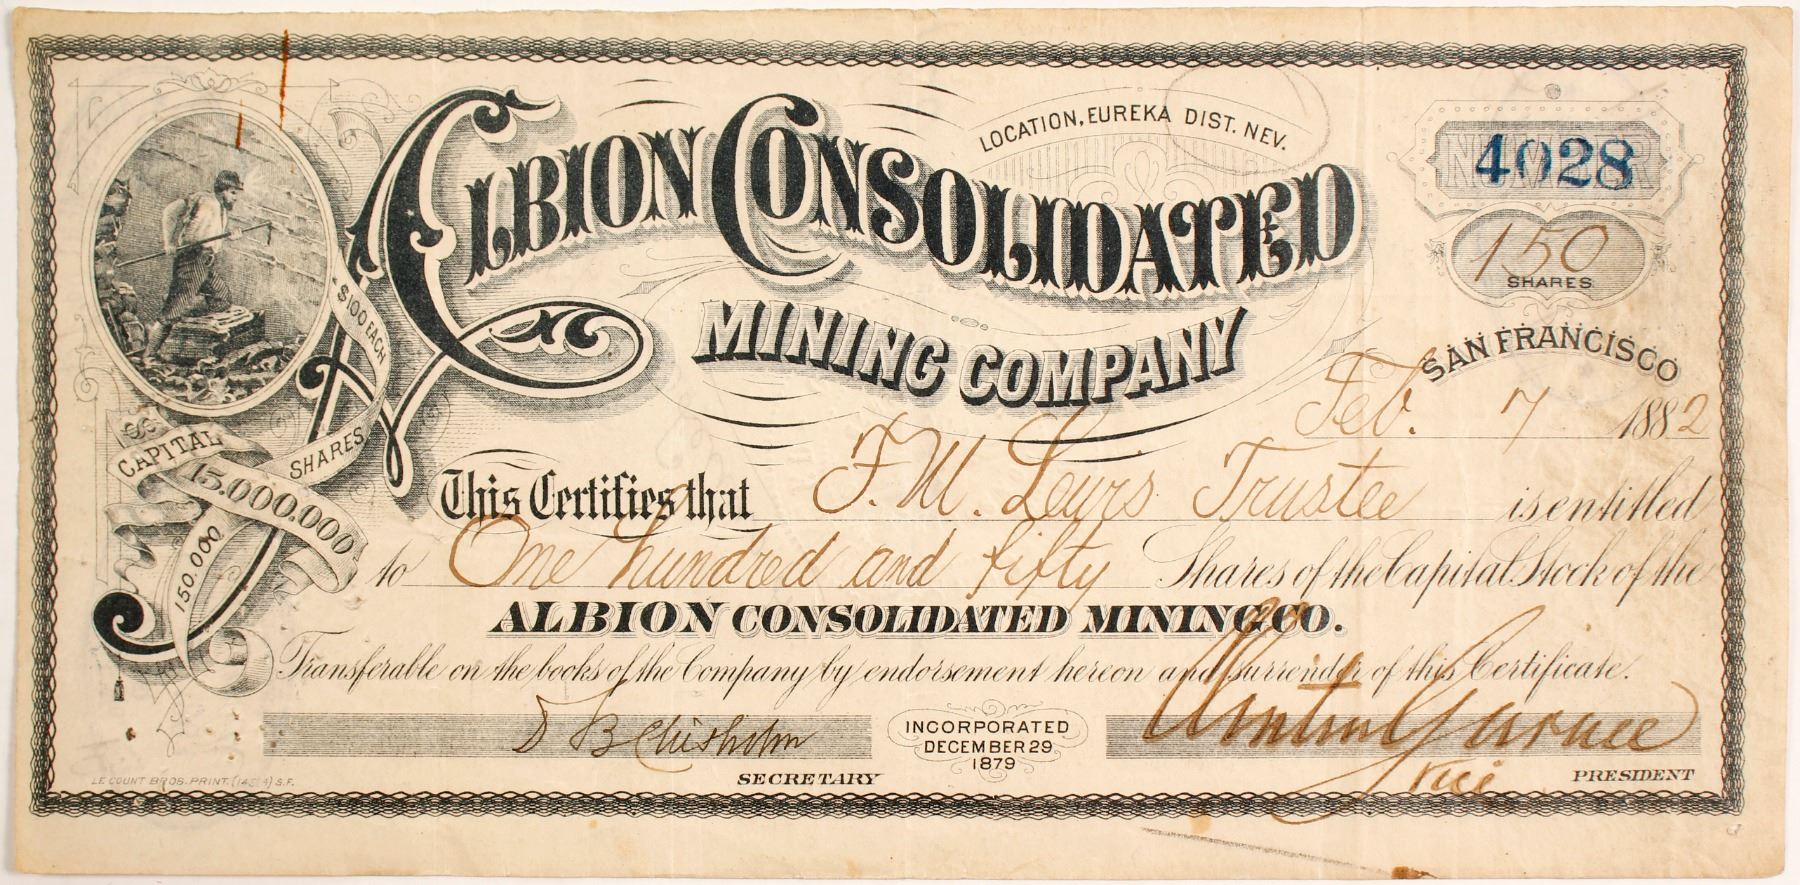 LOCATION, EUREKA DIST. NEV.
ALBION CONSOLIDATED
MINING COMPANY
NUMBER
4028
150
SHARES
$100 EACH
CAPITAL
15.000.000
150.000
SHARES
SAN FRANCISCO
Feb. 7 1882
This Certifies that F. M. Lewis Trustee is entitled
to One hundred and fifty Shares of the Capital Stock of the
ALBION CONSOLIDATED MINING CO.
Transferable on the books of the Company by endorsement hereon and surrender of this Certificate.
D B Chisholm
INCORPORATED
DECEMBER 29
1879
SECRETARY
Vice PRESIDENT
LE COUNT BROS. PRINT. S.F.